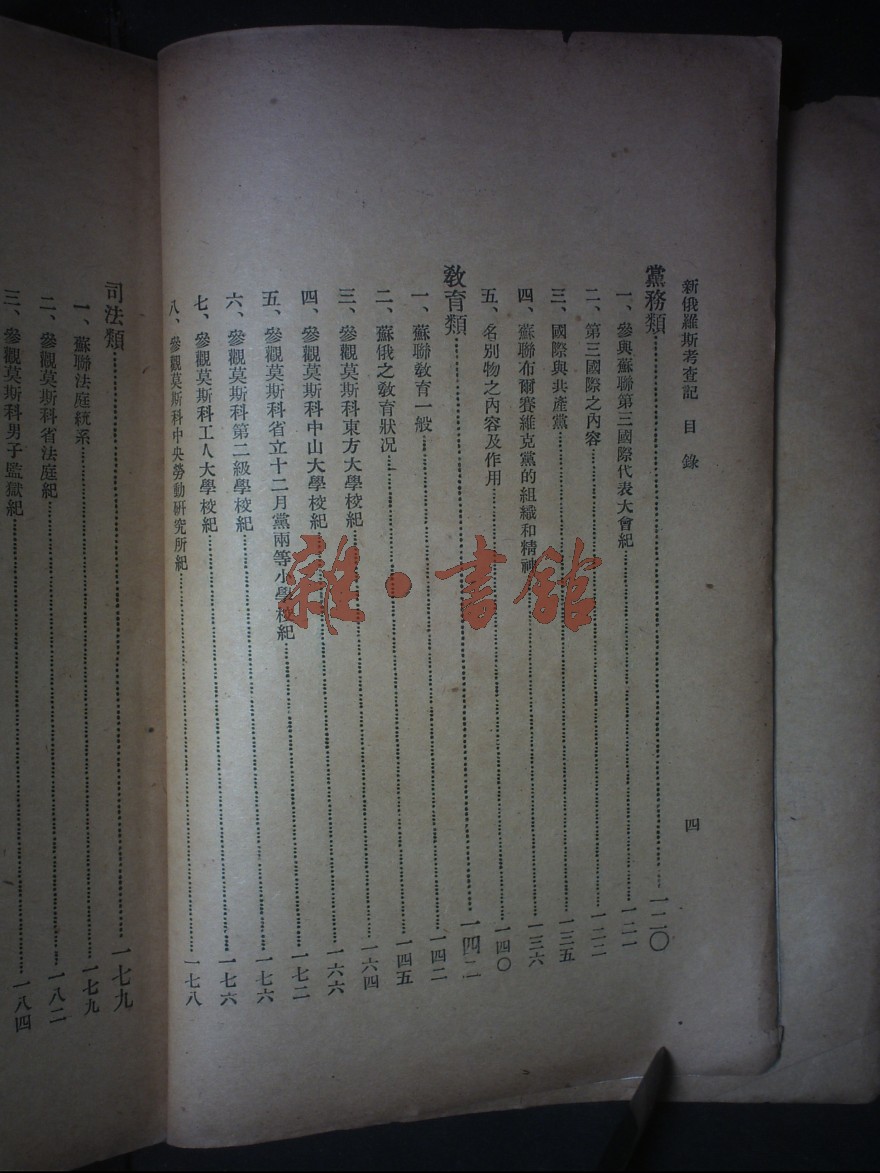 新俄羅斯考查記 目錄 四
黨務類 一二〇
一、參與蘇聯第三國際代表大會紀 一二一
二、第三國際之內容 一二二
三、國際與共產黨 一三五
四、蘇聯布爾賽維克黨的組織和精神 一三六
五、名別物之內容及作用 一四〇
敎育類 一四二
一、蘇聯敎育一般 一四二
二、蘇俄之敎育狀況 一四五
三、參觀莫斯科東方大學校紀 一六四
四、參觀莫斯科中山大學校紀 一六六
五、參觀莫斯科省立十二月黨兩等小學校紀 一七二
六、參觀莫斯科第二級學校紀 一七六
七、參觀莫斯科工人大學校紀 一七六
八、參觀莫斯科中央勞動研究所紀 一七八
司法類 一七九
一、蘇聯法庭統系 一七九
二、參觀莫斯科省法庭紀 一八二
三、參觀莫斯科男子監獄紀 一八四
雜·書館